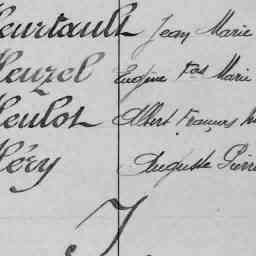 Heurtault Jean Marie
Heuzel Eugène Fois Marie
Heulot Albert François
Héry Auguste Pierre
J